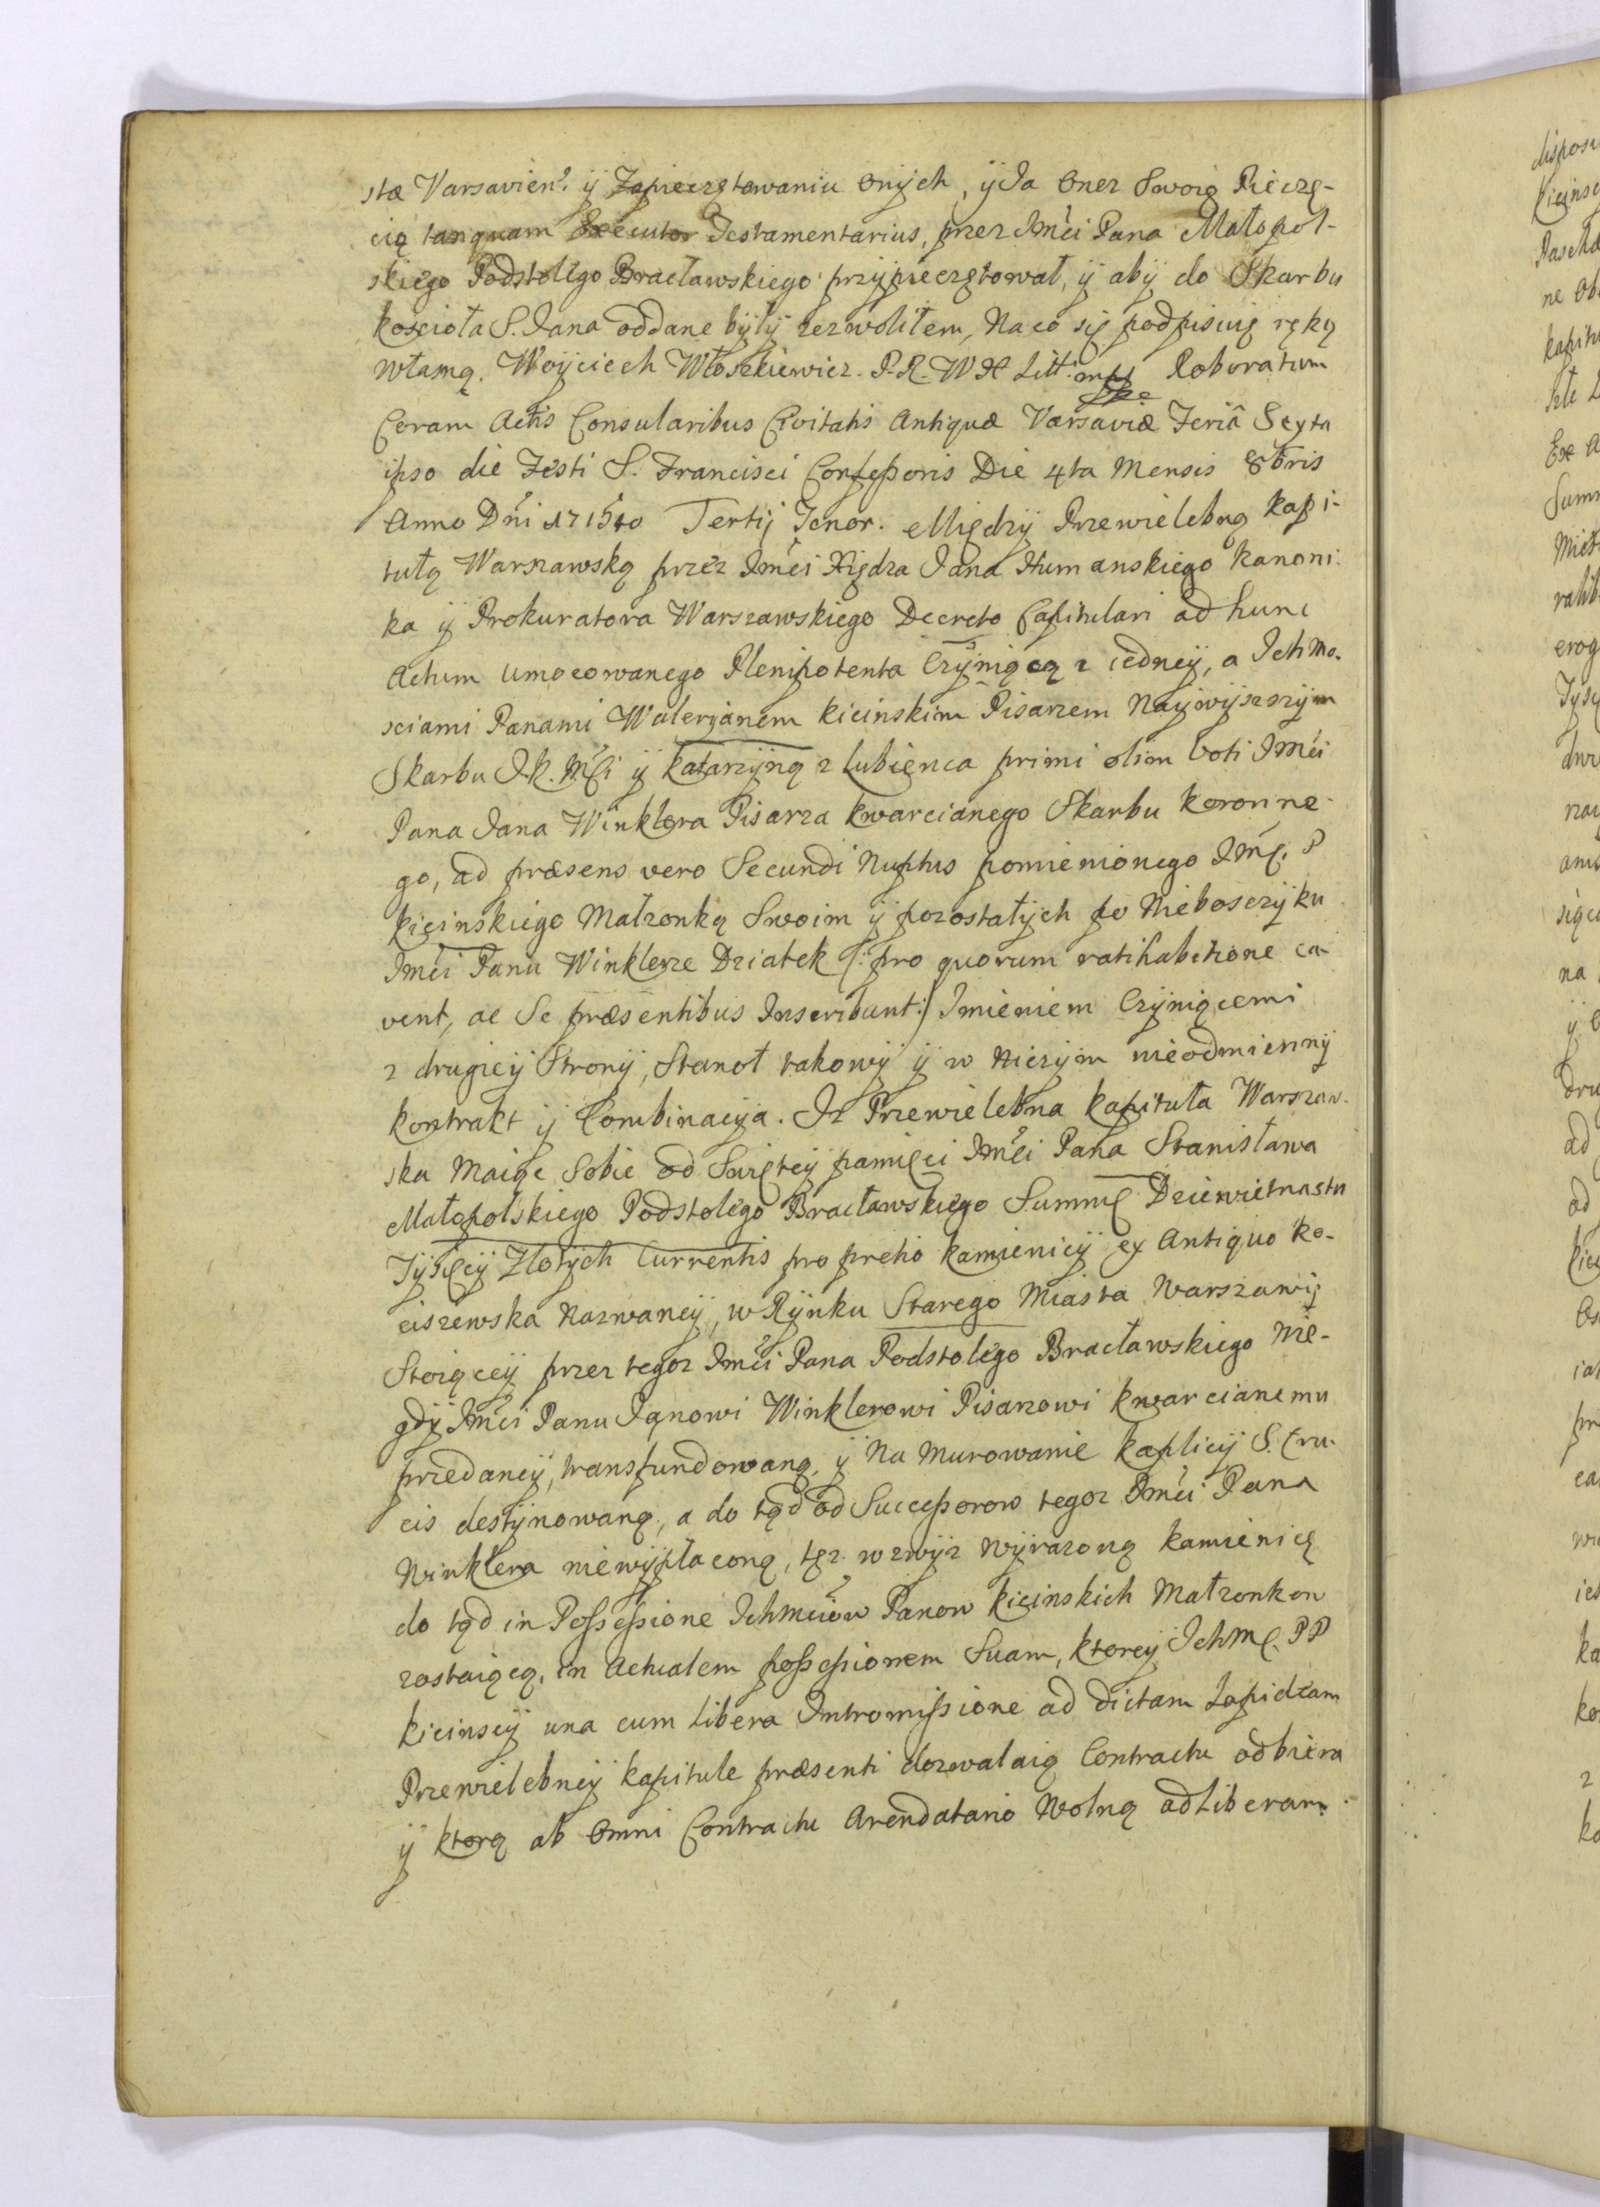 stæ Varsavien: ÿ Zapieczętowaniu onÿch, ÿ Ja onez Swoią Pieczę-
cią tanquam Executor Testamentarius, przez Jmci Pana Małopol-
skiego Podstolego Bracławskiego przÿpieczętował, ÿ abÿ do Skarbu
kościoła S. Jana oddane bÿłÿ zezwoliłem, Na co się podpisuię ręką
własną. Woÿciech Włoszkiewicz. P. R. W X Litt: mpp Roboratum
Coram Actis Consularibus Civitatis Antiquæ Varsaviæ Feriâ Sexta
ipso die Festi S. Francisci Confessoris Die 4ta Mensis 8bris
Anno Dni 1715to Tertÿ Tenor. Międzÿ Przewielebną kapi-
tułą Warszawską przez Jmci Xiędza Jana Humanskiego kanoni-
ka ÿ Prokuratora Warszawskiego Decreto Capitulari ad hunc
Actum umocowanego Plenipotenta Czÿniącą z iedneÿ, a Ichmo-
sciami Panami Waleryanem kicinskim Pisarzem Naÿwÿszszÿm
Skarbu J.K.Mci ÿ katarzÿną z Lubienca primi olim voti Jmci
Pana Jana Winklera Pisarza kwarcianego Skarbu koronne-
go, ad præsens vero Secundi Nuptus pomienionego Jmc. P
kicinskiego Małzonką Swoim ÿ pozostałÿch po Nieboszczÿku
Jmci Panu Winklerze Dziatek (: pro quorum ratihabitione ca-
vent, ac Se præsentibus Inscribunt:) Imieniem Czÿniącemi
z drugieÿ Stronÿ, Stanoł takowÿ ÿ w niczÿm nieodmiennÿ
kontrakt ÿ Combinacÿa. Iz Przewielebna kapituła Warszaw-
ska Maiąc Sobie od Swięteÿ pamięci Jmci Pana Stanisława
Małopolskiego Podstolego Bracławskiego Summę Dziewietnastu
Tÿsięcÿ Złotÿch Currentis pro pretio kamienicÿ ex Antiquo ko-
ciszewska Nazwaneÿ, w Rÿnku Starego Miasta Warszawÿ
Stoiąceÿ przez tegoz Jmci Pana Podstolego Bracławskiego Nie-
gdÿ Jmci Panu Janowi Winklerowi Pisarzowi kwarcianemu
przedaneÿ, transfundowaną, ÿ na Murowanie kaplicÿ S. Cru-
cis destÿnowaną, a do tąd od Successorow tegoz Jmci Pana
Winklera niewÿpłaconą, tęz wzwÿz wÿrazoną kamienicę
do tąd in Possessione Ichmciow Panow kicinskich Małzonkow
zostaiącą, in Actualem possessionem Suam, ktoreÿ Ichmc. PP
kicinscÿ una cum libera Intromissione ad dictam Lapideam
Przewielebneÿ kapitule præsenti dozwalaią Contractu odbiera
ÿ ktorą ab omni Contractu Arendatario Wolną ad liberam